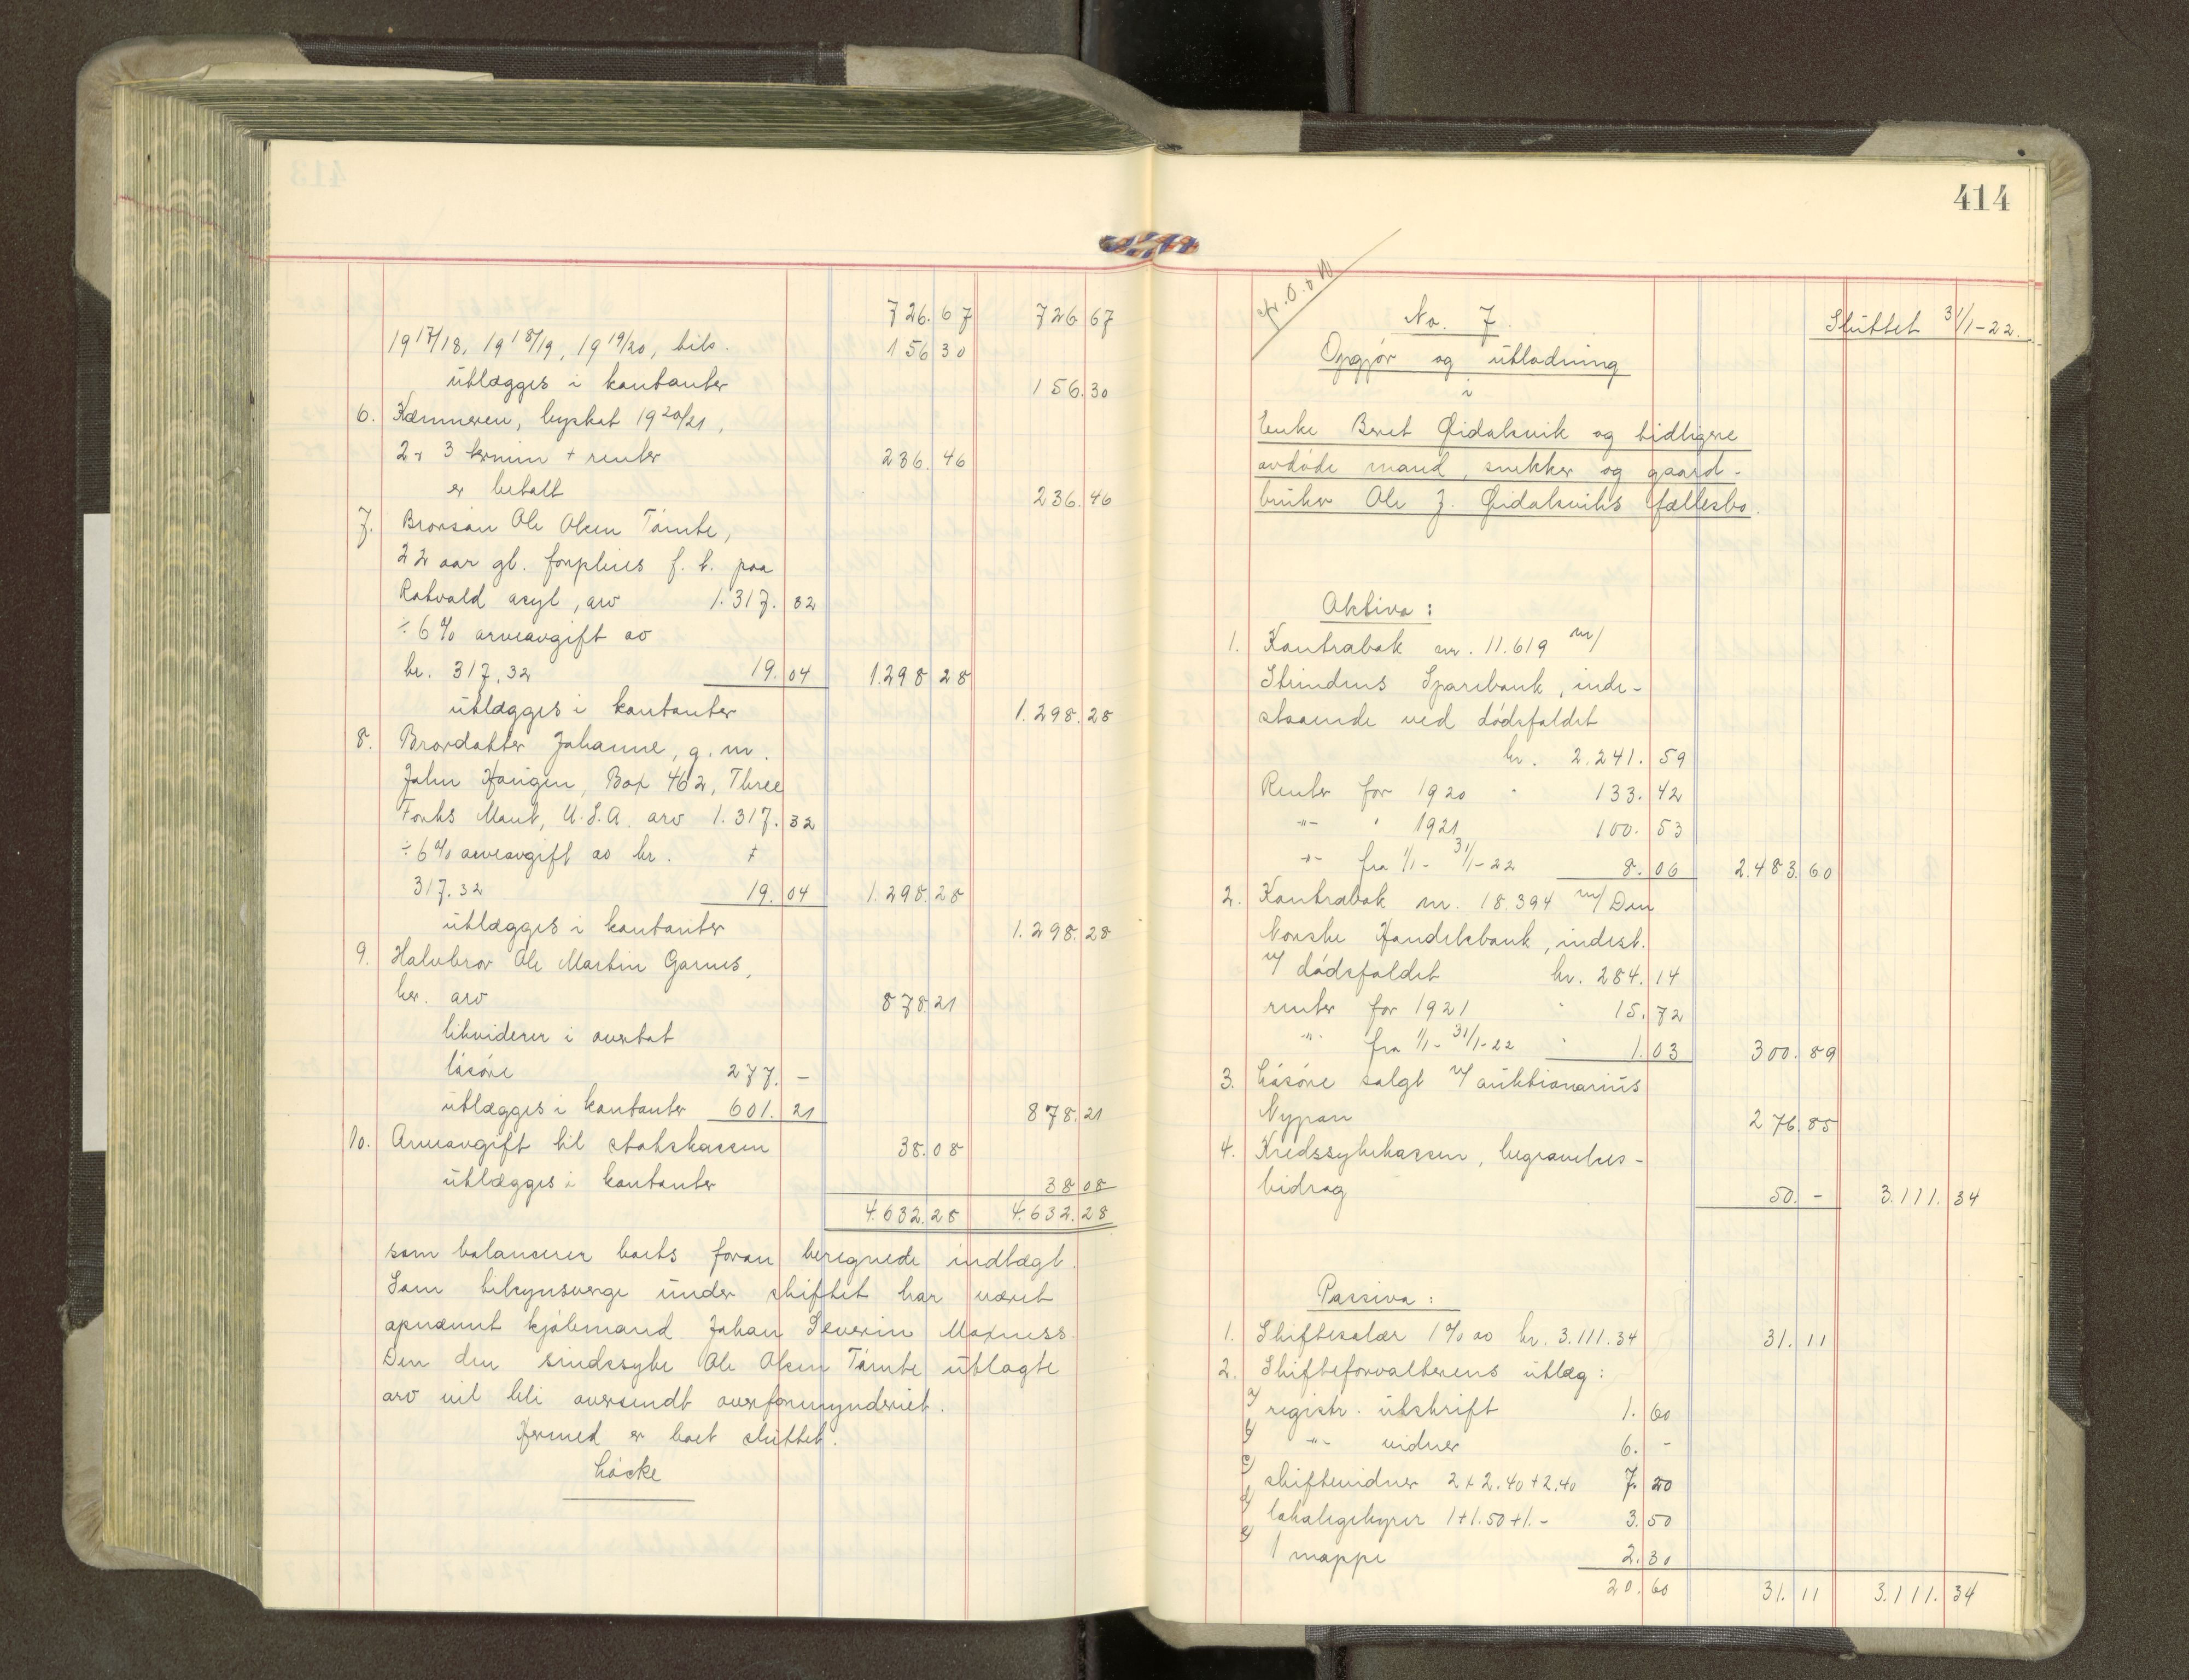 726.67 726 67
19 17/18, 19 18/19, 19 19/20, tils. 156 30
utlægges i kontanter 156.30
6. Kæmneren, byskat 19 20/21,
2 & 3 termin + renter 236.46
er betalt 236.46
7. Brorsøn Ole Olsen Tømte,
22 aar gl. forpleies f. t. paa
Rotvold asyl, arv 1.317.32
÷ 6 % arveavgift av
kr. 317,32 19.04 1.298 28
utlægges i kontanter 1.298.28
8. Brordatter Johanne, g. m.
John Haugen, Box 462, Three
Forks Mont, U.S.A. arv 1.317.32
÷ 6 % arveavgift av kr.
317.32 19.04 1.298.28
utlægges i kontanter 1.298.28
9. Halvbror Ole Martin Garnes,
her. arv 878.21
likviderer i overtat
løsøre 277.-
utlægges i kontanter 601.21 878.21
10. Arveavgift til statskassen 38.08
utlægges i kontanter 38 08
4.632.28 4.632.28
som balancerer boets foran beregnede indtægt.
Som tilsynsverge under skiftet har været
opnævnt kjølemand Johan Severin Moxness.
Den den sindssyke Ole Olsen Tømte utlagte
arv vil bli oversendt overformynderiet.
Hermed er boet sluttet.
Løcke
414
No. 7. Sluttet 31/1-22.
Opgjør og utlodning
i
Enke Beret Øidalsvik og tidligere
avdøde mand, snekker og gaard-
bruker Ole J. Øidalsviks fællesbo.
Aktiva:
1. Kontrabok nr. 11.619 m/
Strindens Sparebank, inde-
staaende ved dødsfaldet
kr. 2.241.59
Renter for 1920 " 133.42
-"- " 1921 100.53
-"- fra 1/1 - 31/1-22 8.06 2.483.60
2. Kontrabok nr. 18.394 m/ Den
Norske Handelsbank, indest.
v/ dødsfaldet kr. 284.14
renter for 1921 " 15.72
-"- fra 1/1 - 31/1-22 " 1.03 300.89
3. Løsøre solgt v/ auktionarius
Nypan 276.85
4. Kredssykekassen, begravelses-
bidrag 50.- 3.111.34
Passiva:
1. Skiftesalær 1 % av kr. 3.111.34 31.11
2. Skifteforvalterens utlæg:
a/ registr. utskrift 1.60
b/ -"- vidner 6.-
c/ skiftevidner 2+2.40+2.40 7.20
d/ lokalgebyrer 1+1.50+1.- 3.50
e/ 1 mappe 2.30
20.60 31.11 3.111.34